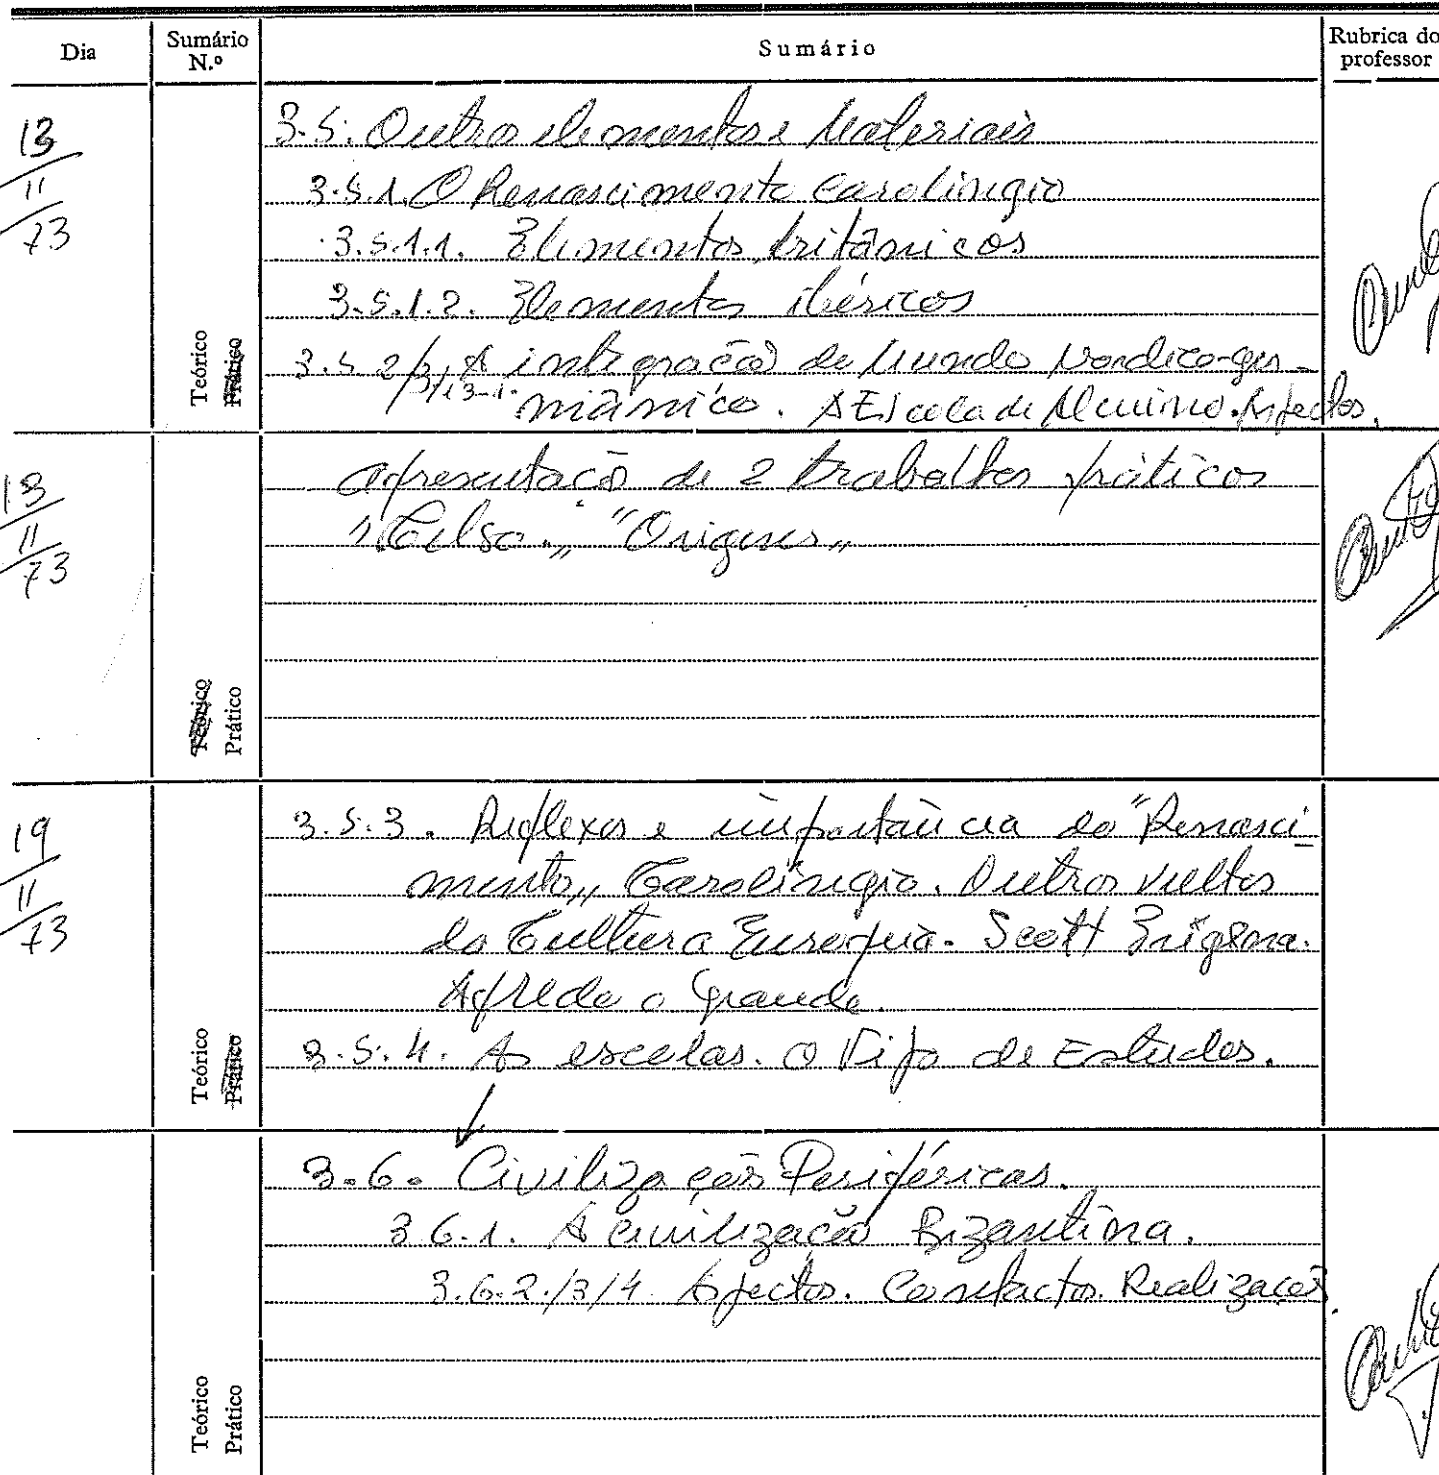 Dia
Sumário N.º
Sumário
Rubrica do professor
13/11/73
Teórico
Prático
3.5. Outros elementos e Materiais
3.5.1. O Renascimento Carolíngio
3.5.1.1. Elementos britânicos
3.5.1.2. Elementos ibéricos
3.5.2/3/ A integração do Mundo Nordico-ger-
mânico. A Escola de Alcuino. Aspectos.
13/11/73
Teórico
Prático
Apresentação de 2 trabalhos práticos
"Celso" "Origenes"
19/11/73
Teórico
Prático
3.5.3. Reflexos e importância do "Renasci-
mento" Carolíngio. Outros vultos
da Cultura Europeia. Scott Erigena.
Alfredo o Grande.
3.5.4. As escolas. O Tipo de Estudos.
Teórico
Prático
3.6. Civilizações Periféricas.
3.6.1. A Civilização Bizantina.
3.6.2./3/4. Aspectos. Contactos. Realizações.